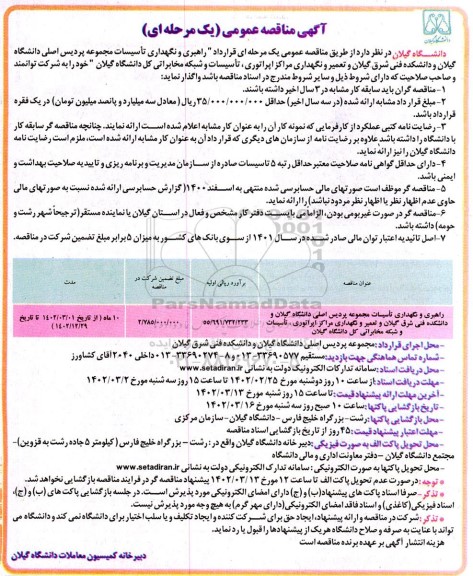 آگهی مناقصه عمومی (یک مرحله ای)
دانشگاه گیلان در نظر دارد از طریق مناقصه عمومی یک مرحله ای قرارداد " راهبری و نگهداری تأسیسات مجموعه پردیس اصلی دانشگاه
گیلان و دانشکده فنی شرق گیلان و تعمیر و نگهداری مراکز اپراتوری ، تأسیسات و شبکه مخابراتی کل دانشگاه گیلان " خود را به شرکت توانمند
و صاحب صلاحیت که دارای شروط ذیل و سایر شروط مندرج در اسناد مناقصه باشد واگذار نماید:
۱- مناقصه گران باید سابقه کار مشابه در ۳ سال اخیر داشته باشند.
۲- مبلغ قرارداد مشابه ارائه شده (در سه سال اخیر) حداقل ۳۵/۰۰۰/۰۰۰/۰۰۰ ریال (معادل سه میلیارد و پانصد میلیون تومان) در یک فقره
قرارداد باشد.
۳- رضایت نامه کتبی عملکرد از کارفرمایی که نمونه کار آن را به عنوان کار مشابه اعلام شده است ارائه نمایند. چنانچه مناقصه گر سابقه کار
با دانشگاه را داشته باشد علاوه بر رضایت نامه از سازمان های دیگری که قرارداد آن به عنوان کار مشابه ارائه شده است، ملزم است رضایت نامه
دانشگاه گیلان را نیز ارائه نماید.
۴- دارای حداقل گواهی نامه صلاحیت معتبر حداقل رتبه ۵ تاسیسات صادره از سازمان مدیریت و برنامه ریزی و تاییدیه صلاحیت بهداشت و
ایمنی باشد.
۵- مناقصه گر موظف است صورتهای مالی حسابرسی شده منتهی به اسفند ۱۴۰۰ (گزارش حسابرسی ارائه شده نسبت به صورتهای مالی
حاوی عدم اظهار نظر یا اظهار نظر مردود نباشد) را ارائه نماید.
۶- مناقصه گر در صورت غیربومی بودن، الزاماً می بایست دفتر کار مشخص و فعال در استان گیلان یا نماینده مستقر (ترجیحاً شهر رشت و
حومه) داشته باشد.
۷- اصل تائیدیه اعتبار توان مالی صادر شده در سال ۱۴۰۱ از سوی بانک های کشور به میزان ۵ برابر مبلغ تضمین شرکت در مناقصه.
عنوان مناقصه	برآورده ریالی اولیه	مبلغ تضمین شرکت در مناقصه	مدت
راهبری و نگهداری تأسیسات مجموعه پردیس اصلی دانشگاه گیلان و
دانشکده فنی شرق گیلان و تعمیر و نگهداری مراکز اپراتوری ، تأسیسات
و شبکه مخابراتی کل دانشگاه گیلان
۵۵/۶۹۱/۷۳۲/۲۳۳
۲/۷۸۵/۰۰۰/۰۰۰
۱۰ ماه ( از تاریخ ۱۴۰۲/۰۳/۰۱ تا تاریخ
۱۴۰۲/۱۲/۲۹ )
- محل اجرای قرارداد: مجموعه پردیس اصلی دانشگاه گیلان و دانشکده فنی شرق گیلان
- شماره تماس هماهنگی جهت بازدید: مستقیم ۰۱۳-۳۳۶۹۰۵۷۷ و ۸-۰۱۳-۳۳۶۹۰۲۷۴ داخلی ۲۰۴۰ آقای کشاورز
- محل دریافت اسناد: سامانه تدارکات الکترونیک دولت به نشانی www.setadiran.ir
- مهلت دریافت اسناد: از ساعت ۱۰ روز دوشنبه مورخ ۱۴۰۲/۰۲/۲۵ تا ساعت ۱۵ روز شنبه مورخ ۱۴۰۲/۰۳/۲
- آخرین مهلت ارائه پیشنهاد قیمت: تا ساعت ۱۵ روز شنبه مورخ ۱۴۰۲/۰۳/۱۳
- تاریخ بازگشایی پاکتها: ساعت ۱۰ صبح روز سه شنبه مورخ ۱۴۰۲/۰۳/۱۶
- محل بازگشایی پاکتها: رشت- بزرگراه خلیج فارس - دانشگاه گیلان- سازمان مرکزی
- مهلت اعتبار پیشنهاد قیمت: ۴۵ روز از تاریخ بازگشایی اسناد مناقصه
- محل تحویل پاکت الف به صورت فیزیکی: دبیرخانه دانشگاه گیلان واقع در: رشت - بزرگراه خلیج فارس (کیلومتر ۵ جاده رشت به قزوین)-
مجتمع دانشگاه گیلان -دفتر معاونت اداری و مالی دانشگاه
- محل تحویل پاکتها به صورت الکترونیکی: سامانه تدارک الکترونیکی دولت به نشانی www.setadiran.ir
* توجه: در صورت عدم تحویل پاکت الف تا ساعت ۱۲ مورخ ۱۴۰۲/۰۳/۱۳ پیشنهاد مناقصه گر در فرایند مناقصه بازگشایی نخواهد شد.
* تذکر: صرفا اسناد پاکت های پیشنهاد (ب) و (ج) دارای امضای الکترونیکی مورد پذیرش است. در جلسه بازگشایی پاکت های (ب) و (ج)،
اسناد فیزیکی (کاغذی) و اسناد فاقد امضای الکترونیکی (دارای مهر گرم) به هیچ وجه مورد پذیرش نیست.
* تذکر: شرکت در مناقصه و ارائه پیشنهاد، ایجاد حق برای شرکت کننده و ایجاد تکلیف و یا سلب اختیار برای دانشگاه نمی کند و دانشگاه می
تواند با عنایت به صرفه و صلاح دانشگاه هریک از پیشنهادها را قبول یا رد نماید.
هزینه انتشار آگهی بر عهده برنده مناقصه است
دبیرخانه کمیسیون معاملات دانشگاه گیلان